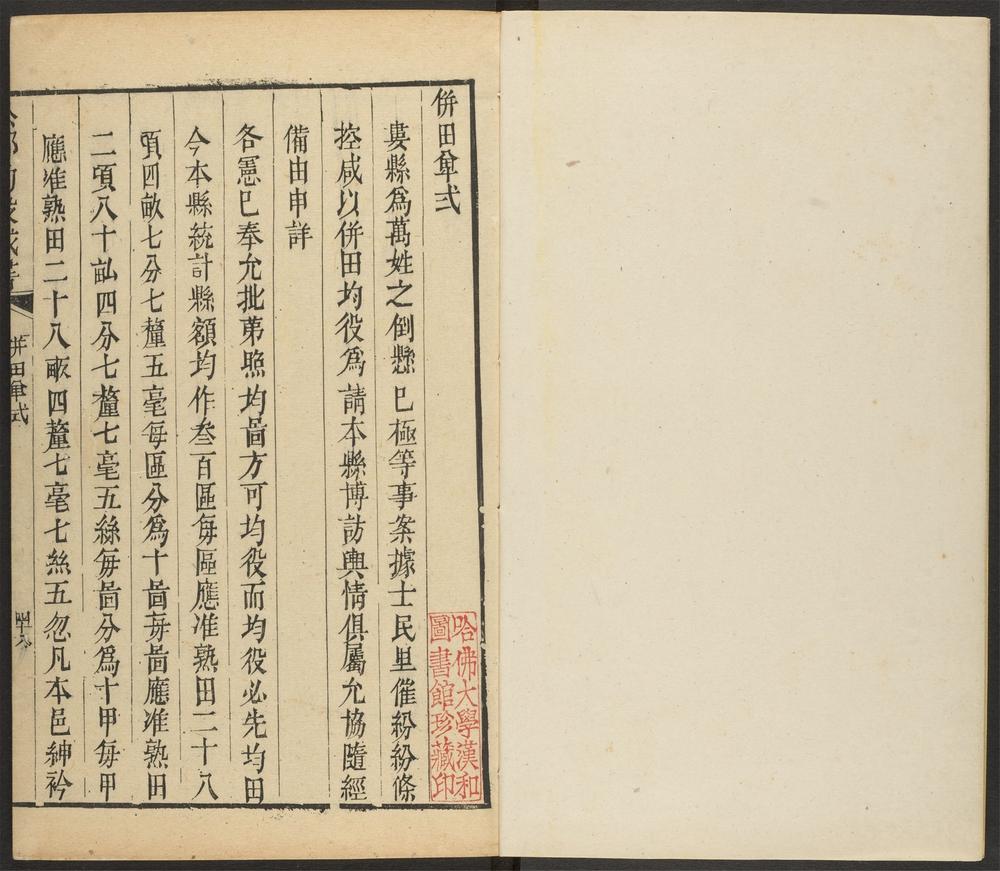 併田單式
婁縣爲萬姓之倒懸已極等事案據士民里催紛紛條
控咸以併田均役爲請本縣博訪輿情俱屬允協隨經
備由申詳
各憲已奉允批苐照均啚方可均役而均役必先均田
今本縣統計縣額均作叁百區每區應准熟田二十八
頃四畝七分七釐五毫每區分爲十啚每啚應准熟田
二頃八十畝四分七釐七毫五絲每啚分爲十甲每甲
應准熟田二十八畝四釐七毫七絲五忽凡本邑紳衿
併田單式
哈佛大學漢和
圖書館珍藏印